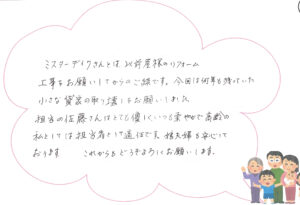 ミスターデイクさんとは、以前屋根のリフォーム
工事をお願いしてからのご縁です。今回は何年も残っていた
小さな貸家の取り壊しをお願いしました。
担当の佐藤さんはとても優しくいつも穏やかで高齢の
私としては担当者として適任で、夫婦も安心して
おります これからもどうぞよろしくお願いします。